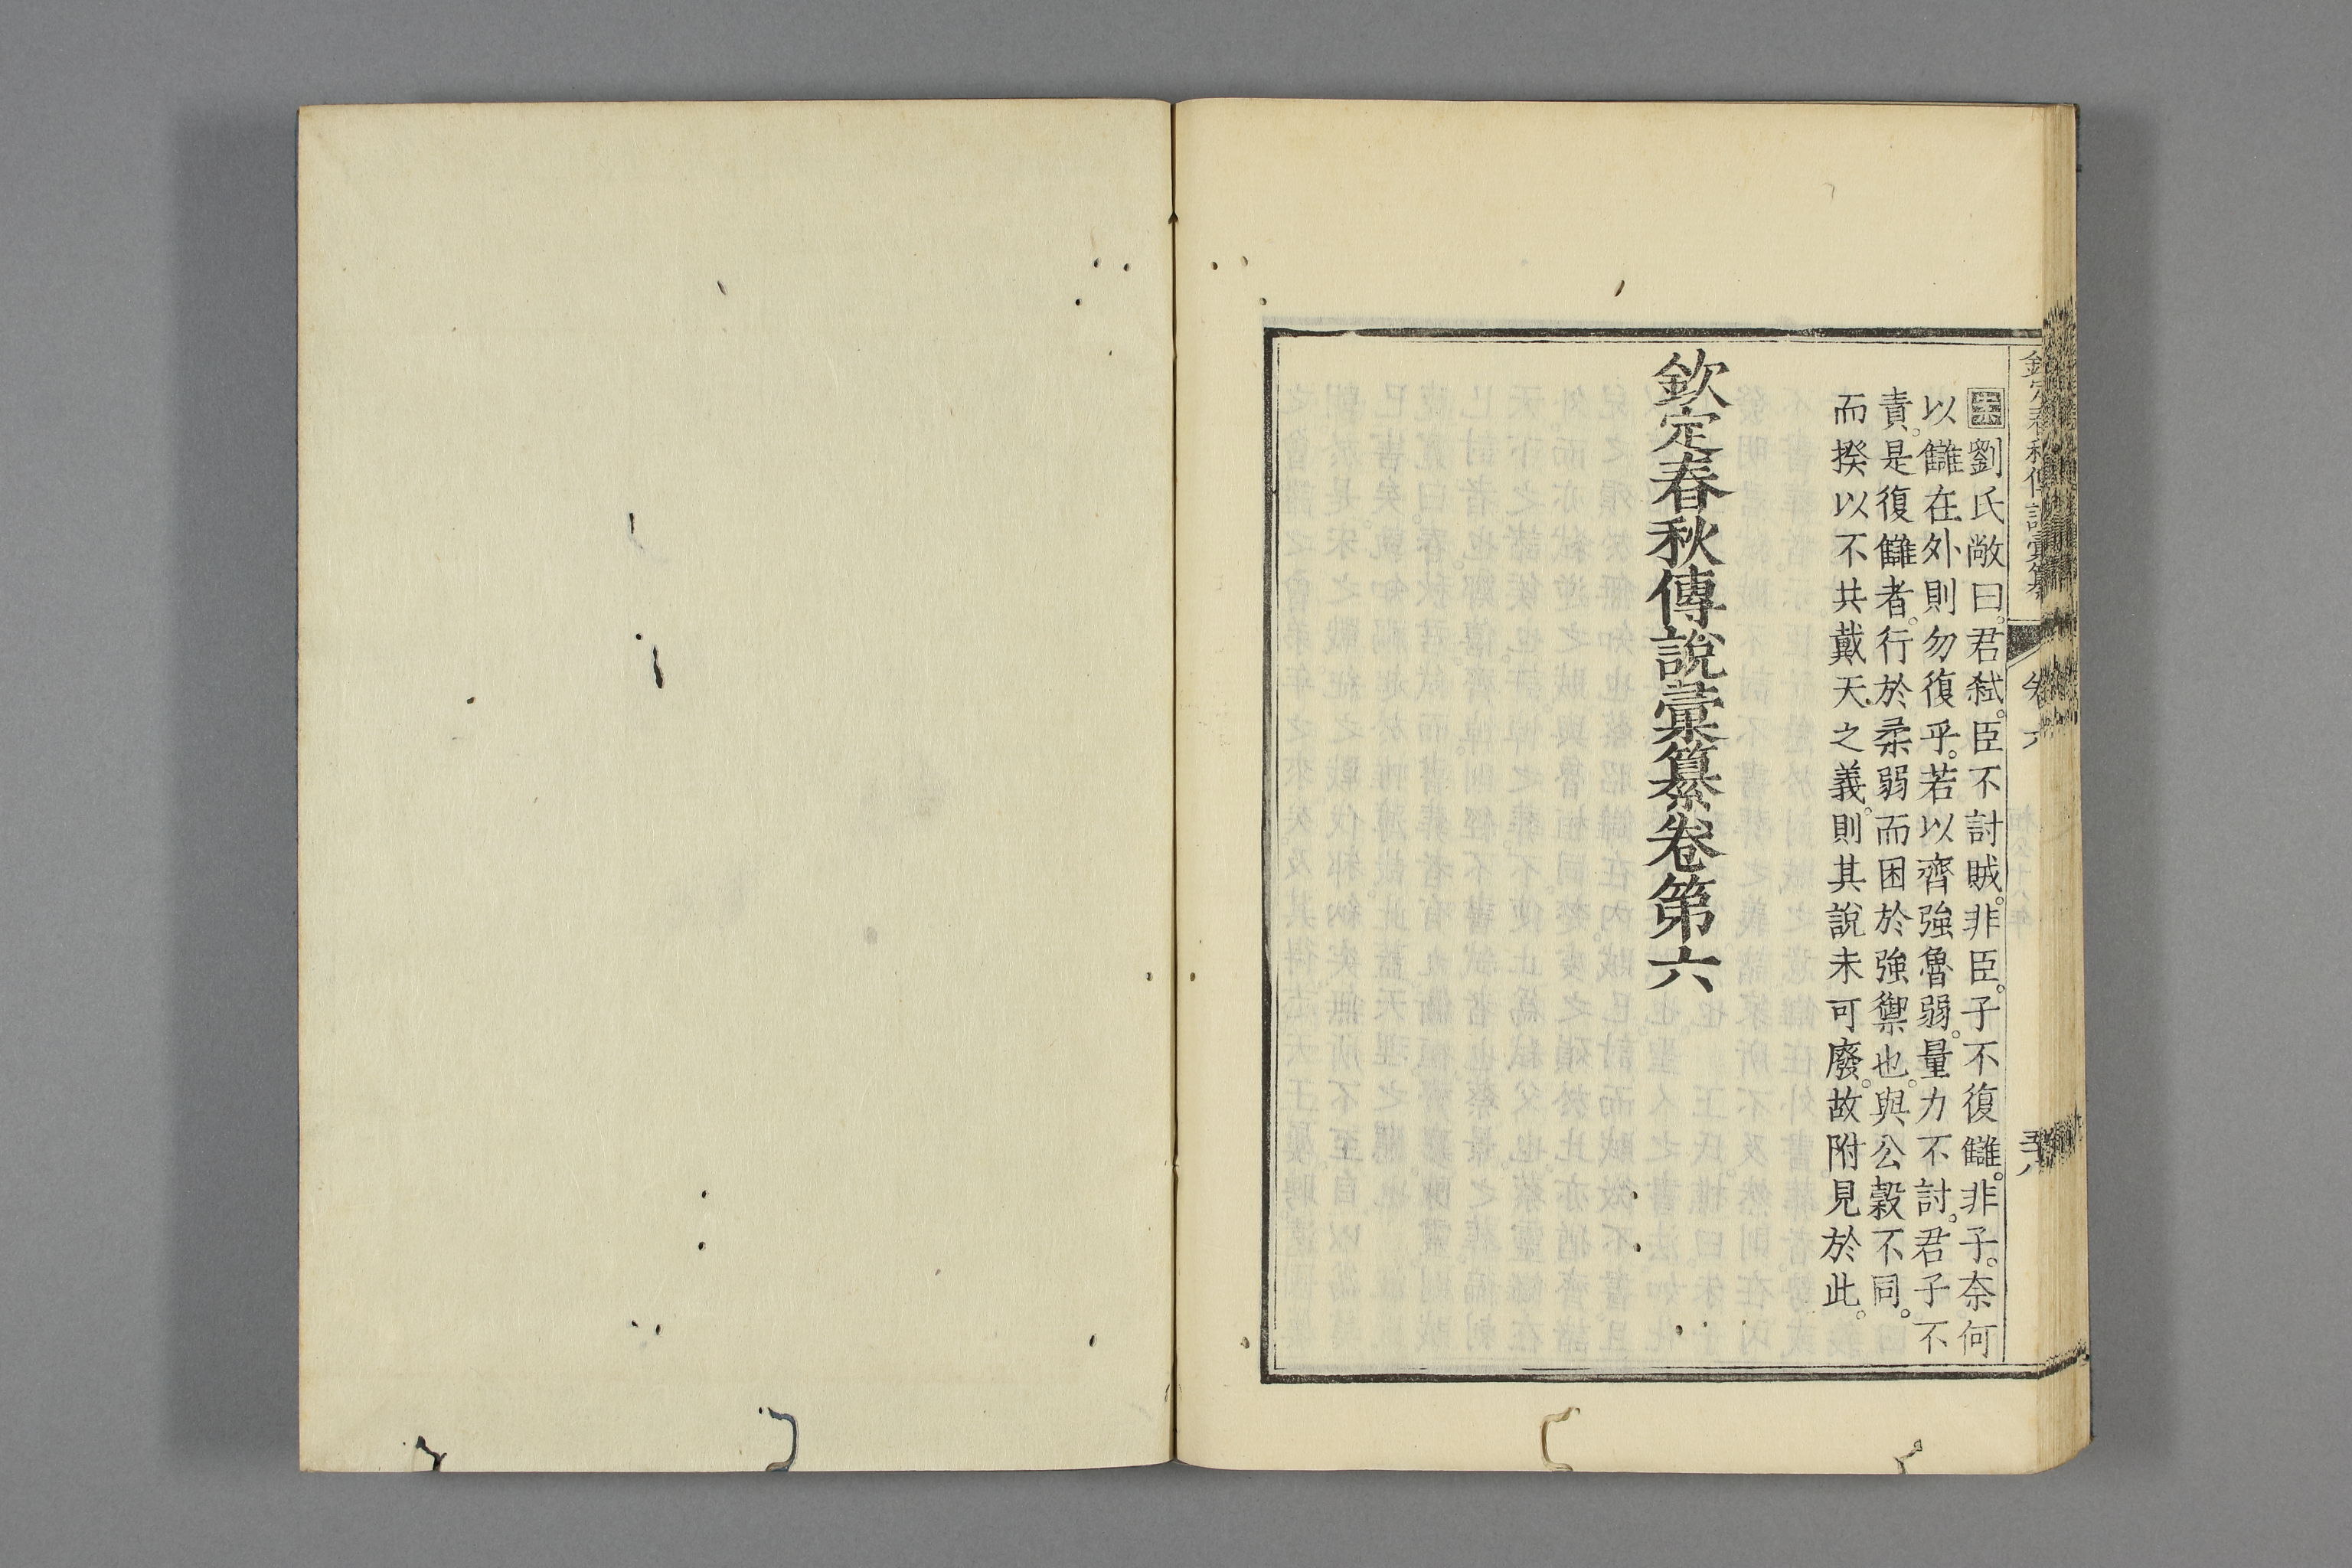 欽定春秋傳說彙纂 卷六
劉氏敞曰。君弒。臣不討賊。非臣。子不復讎。非子。奈何
以讎在外則勿復乎。若以齊強魯弱。量力不討。君子不
責。是復讎者。行於柔弱而困於強禦也。與公穀不同。
而揆以不共戴天之義。則其說未可廢。故附見於此。
欽定春秋傳說彙纂卷第六